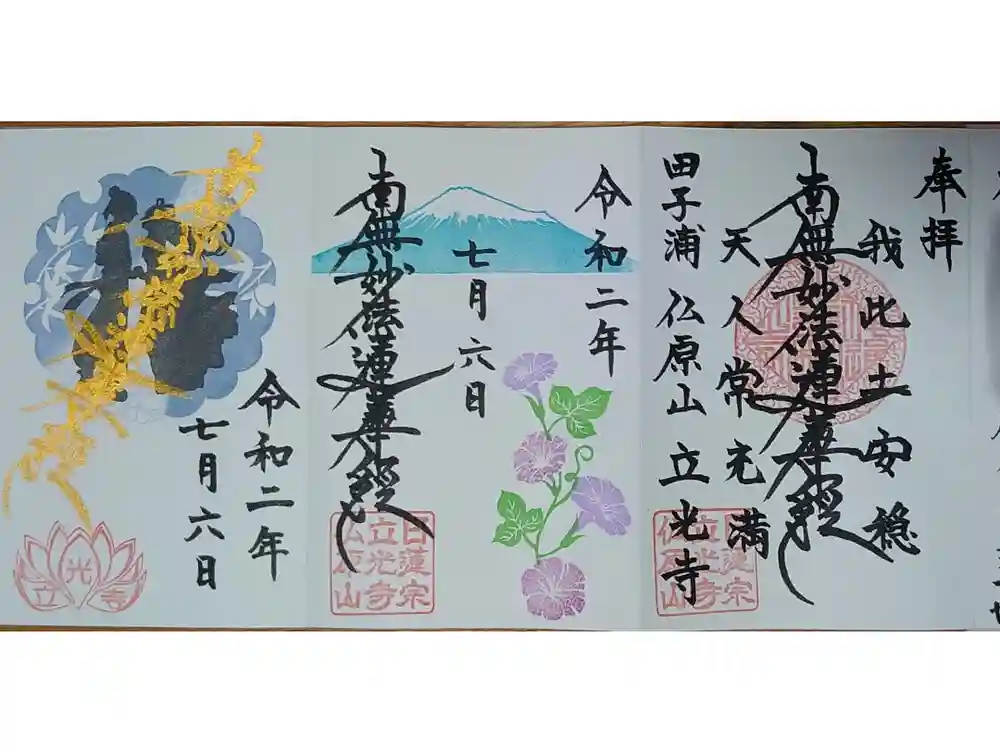 奉拝
我此土安穏
南無妙法蓮華経
天人常充満
田子浦 仏原山 立光寺
日蓮宗
立光寺
仏原山
令和二年
七月六日
南無妙法蓮華経
日蓮宗
立光寺
仏原山
令和二年
七月六日
立光寺